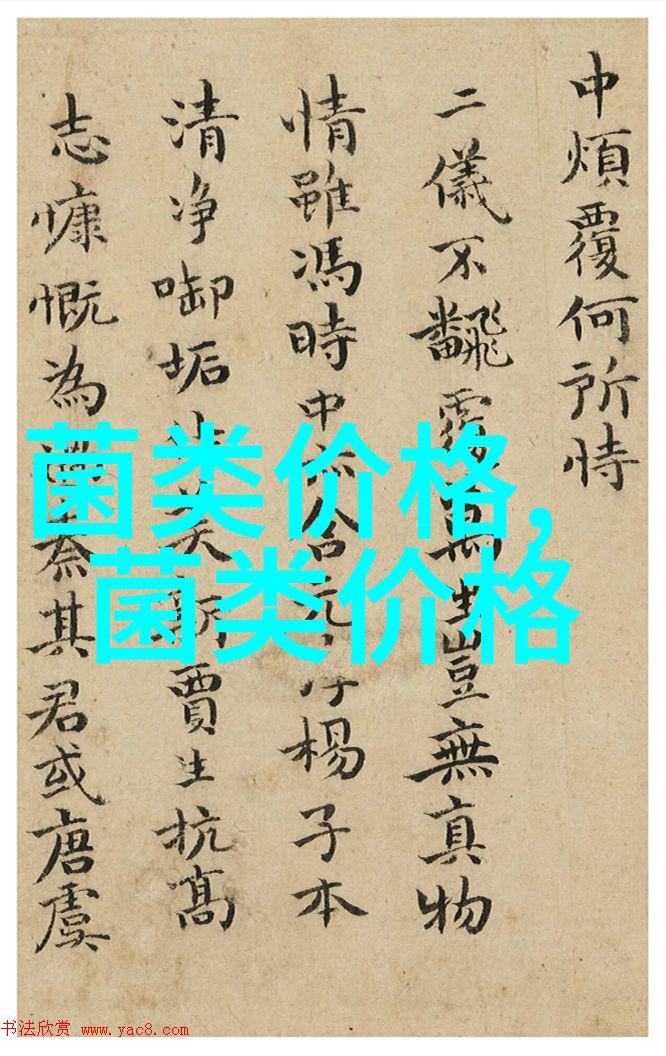 中煩覆何所恃
二儀不飜覆生豈無真物
情雖馮時中楊子本
清净啣垢美新賈生抗髙
志慷慨為其君或唐虞
菌类价格,
菌类价格
书法欣赏 www.yac8.com